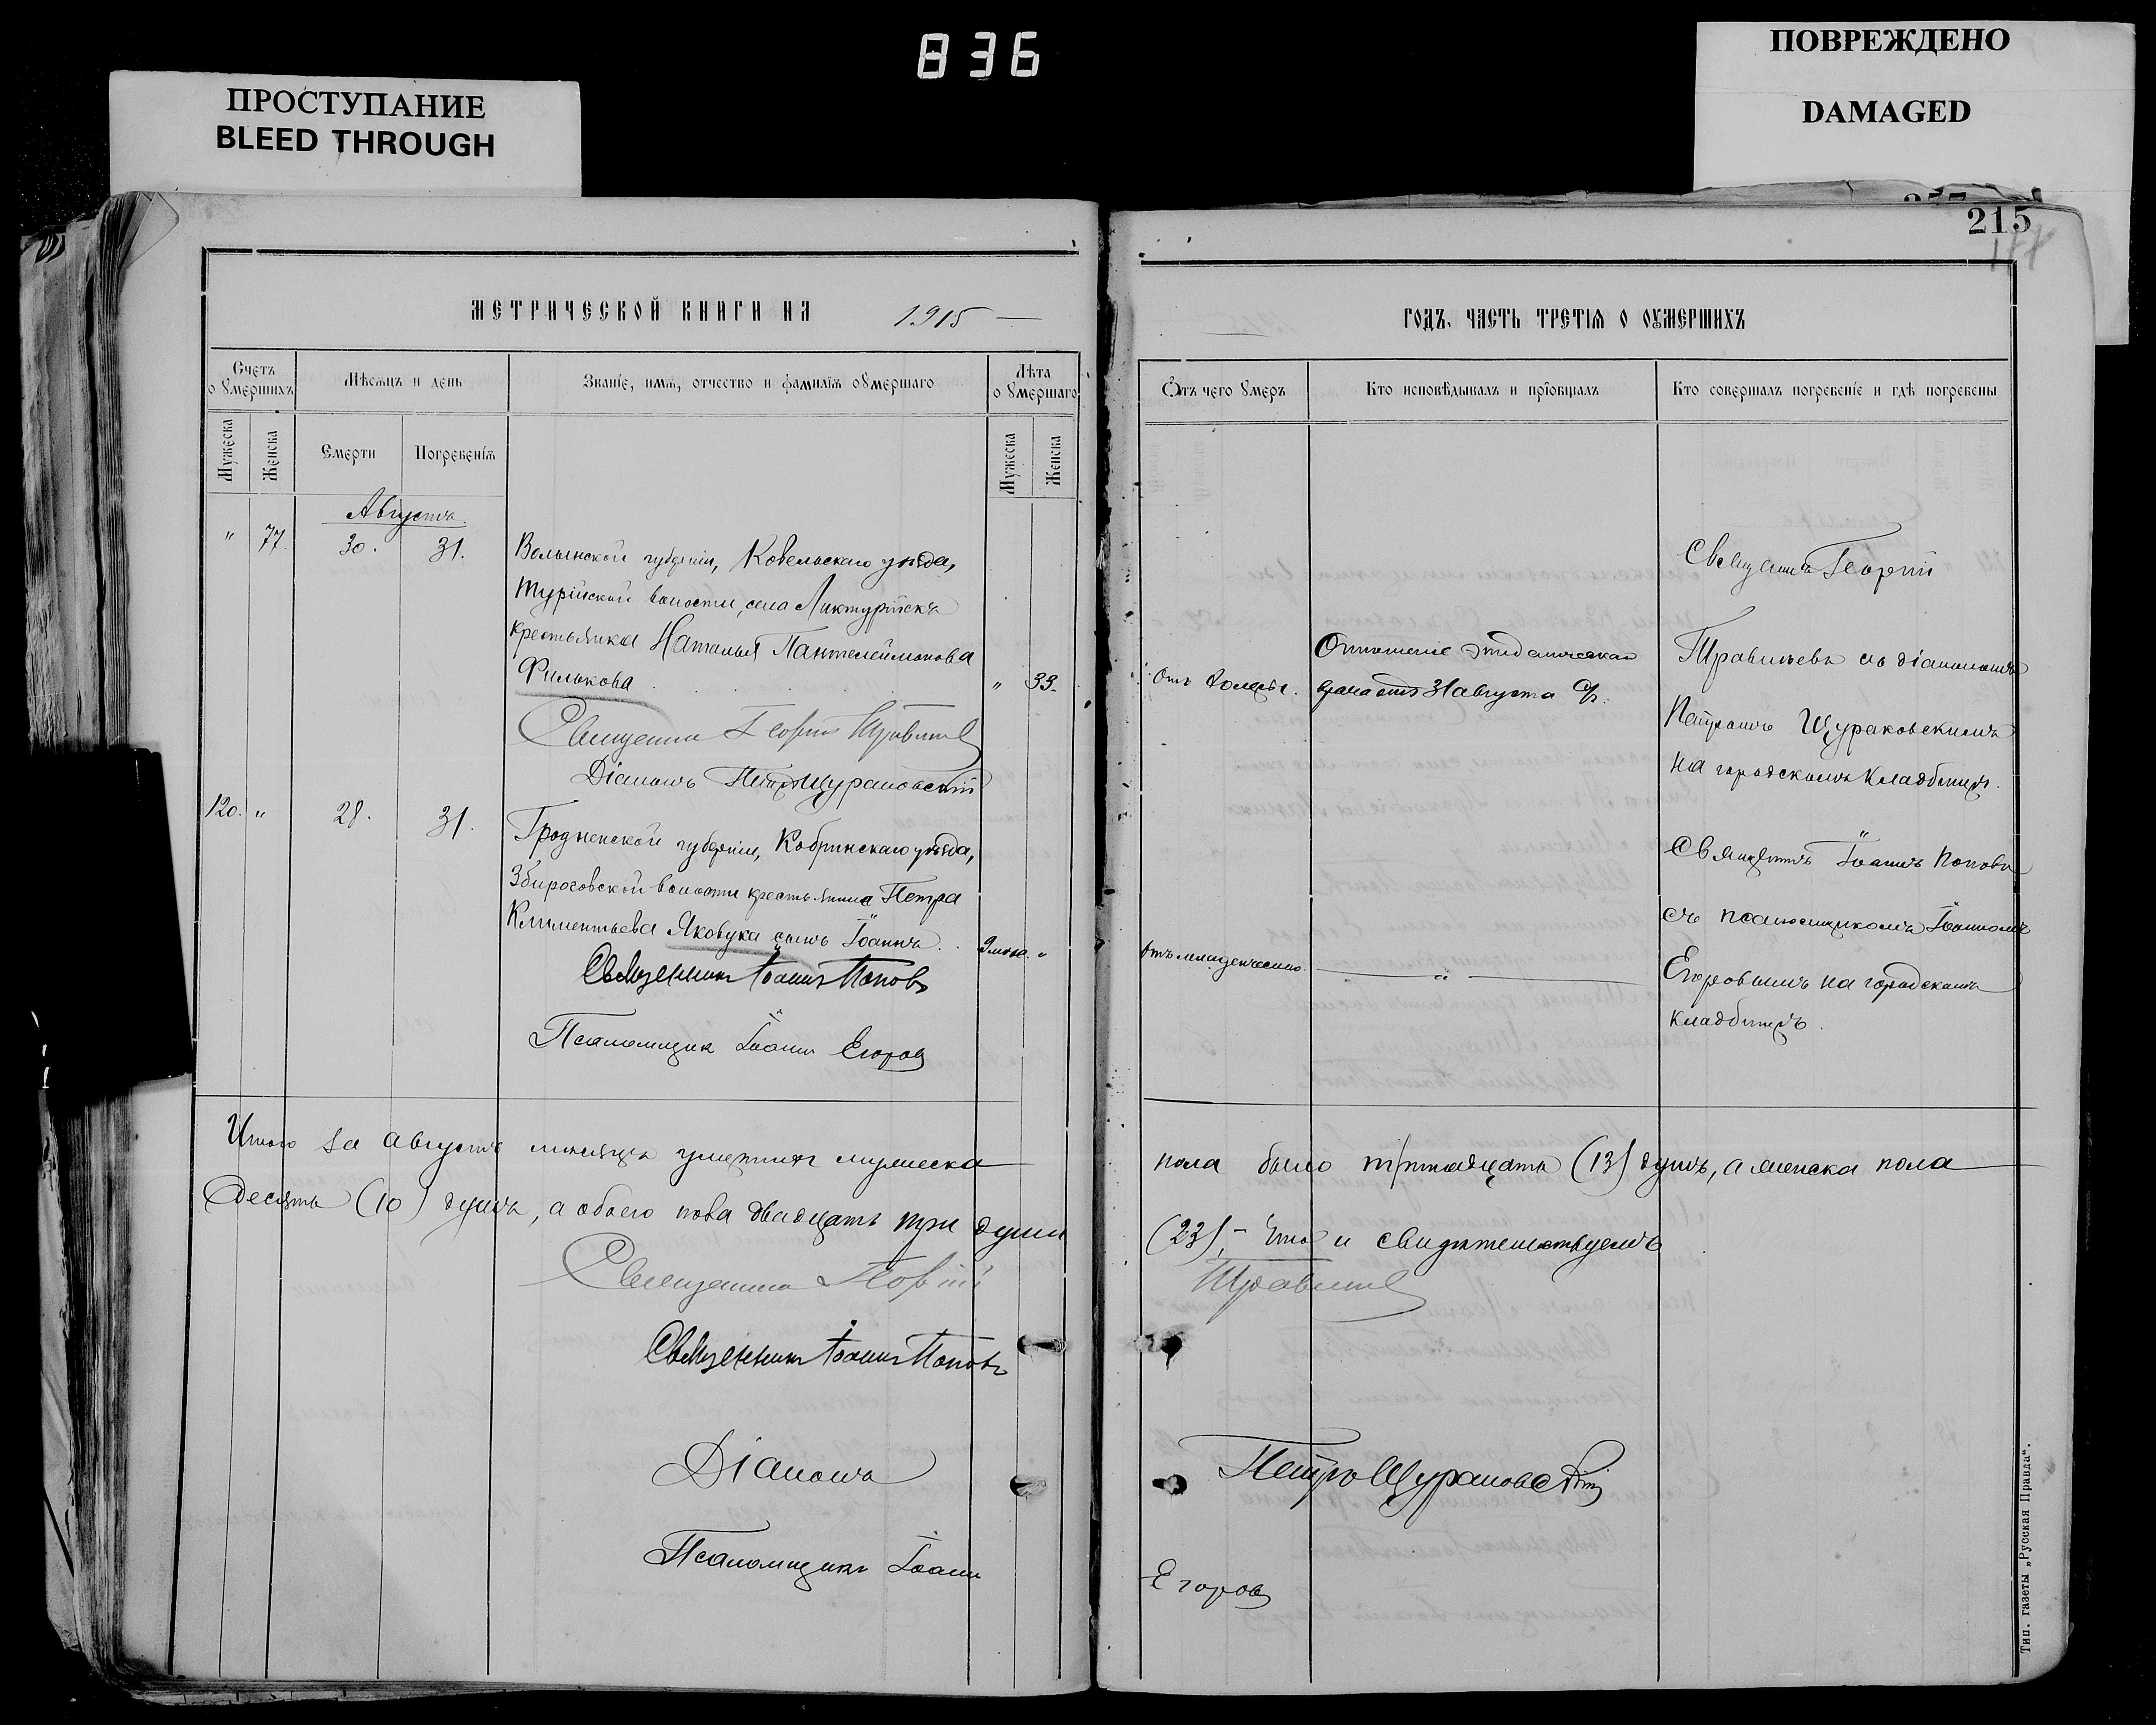 836
ПРОСТУПАНИЕ
BLEED THROUGH
ПОВРЕЖДЕНО
DAMAGED
215
МЕТРИЧЕСКОЙ КНИГИ НА 1915
Счетъ о умершихъ
Мѣсяцъ и день
Званіе, имя, отчество и фамилія оумершаго
Лѣта оумершаго
Мужеска
Женска
Смерти
Погребенія
Мужеска
Женска
Августъ.
" 77. 30. 31.
Волынской губерніи, Ковельскаго уѣзда,
Турійской волости, села
крестьянка Наталья Пантелеймонова
Филькова " 33.
Священникъ Георгій Травинъ
Діаконъ Петръ Щураковскій
120. " 28. 31.
Гродненской губерніи, Кобринскаго уѣзда,
Збироговской волости крестьянина Петра
Климентьева Яковука сынъ Іоаннъ . . "
Священникъ Іоаннъ Поповъ
Псаломщикъ Іоаннъ Егоровъ
Итого за Августъ мѣсяцъ умершихъ мужеска
десять (10) душъ, а обоего пола двадцать три души
Священникъ Георгій
Священникъ Іоаннъ Поповъ
Діаконъ
Псаломщикъ Іоаннъ
ГОДЪ, ЧАСТЬ ТРЕТІЯ О ОУМЕРШИХЪ
Отъ чего умеръ
Кто исповѣдывалъ и пріобщалъ
Кто совершалъ погребеніе и гдѣ погребены
Отъ холеры.
Отношеніе эпидемическаго
врача отъ 31 августа
Священникъ Георгій
съ діакономъ
Петромъ Щураковскимъ
на городскомъ кладбищѣ.
Отъ младенческой.
"
Священникъ Іоаннъ Поповъ
съ псаломщикомъ Іоанномъ
Егоровымъ на городскомъ
кладбищѣ.
пола было тринадцать (13) душъ, а женска пола
(23), - Что и свидѣтельствуемъ
Петръ Щураковскій
Егоровъ
Тип. газеты „Русская Правда“.